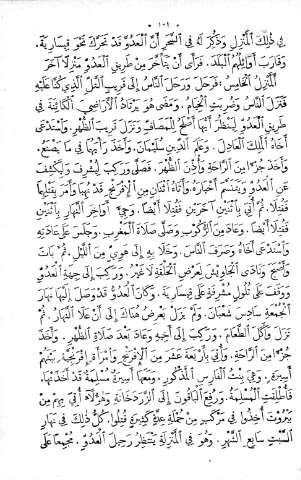 — ١٠١ —
فِي ذٰلِكَ الْمَنْزِلِ وَذُكِرَ لَهُ فِي السَّحَرِ أَنَّ الْعَدُوَّ قَدْ تَحَرَّكَ نَحْوَ قَيْسَارِيَّةَ.
وَقَارَبَ أَوَائِلُهُمُ الْبَلَدَ. فَرَأَى أَنْ يَتَأَخَّرَ مِنْ طَرِيقِ الْعَدُوِّ مَنْزِلًا آخَرَ
الْمَنْزِلُ الْخَامِسُ: فَرَحَلَ وَرَحَلَ النَّاسُ إِلَى قَرِيبِ التَّلِّ الَّذِي كُنَّا عَلَيْهِ
فَنَزَلَ النَّاسُ وَضُرِبَتِ الْخِيَامُ. وَمَضَى هُوَ يَرْتَادُ الْأَرَاضِيَ الْكَائِنَةَ فِي
طَرِيقِ الْعَدُوِّ لِيَنْظُرَ أَيُّهَا أَصْلَحُ لِلْمَصَافِّ وَنَزَلَ قَرِيبَ الظُّهْرِ. وَاسْتَدْعَى
أَخَاهُ الْمَلِكَ الْعَادِلَ. وَعَلَمَ الدِّينِ سُلَيْمَانَ. وَأَخَذَ رَأْيَهُمَا فِي مَا يَصْنَعُ.
وَأَخَذَ جُزْءًا مِنَ الرَّاحَةِ وَأُذِّنَ الظُّهْرُ. فَصَلَّى وَرَكِبَ لِيُشْرِفَ وَلِيَكْشِفَ
عَنِ الْعَدُوِّ وَيَتَنَسَّمَ أَخْبَارَهُ. وَأَتَاهُ اثْنَانِ مِنَ الْإِفْرَنْجِ قَدْ نُهِبَا وَأَمَرَ بِقَتْلِهِمَا
فَقُتِلَا. ثُمَّ أُتِيَ بِاثْنَيْنِ آخَرَيْنِ فَقُتِلَا أَيْضًا. وَجِيءَ أَوَاخِرَ النَّهَارِ بِاثْنَيْنِ
فَقُتِلَا أَيْضًا. وَعَادَ مِنَ الرُّكُوبِ وَصَلَّى صَلَاةَ الْمَغْرِبِ. وَجَلَسَ عَلَى عَادَتِهِ
وَاسْتَدْعَى أَخَاهُ وَصَرَفَ النَّاسَ. وَخَلَا بِهِ إِلَى هَوِيٍّ مِنَ اللَّيْلِ. ثُمَّ بَاتَ
وَأَصْبَحَ وَنَادَى الْجَاوِيشُ لِعَرْضِ الْحَلْقَةِ لَا غَيْرَ. وَرَكِبَ إِلَى جِهَةِ الْعَدُوِّ
وَوَقَفَ عَلَى تُلُولٍ مُشْرِفَةٍ عَلَى قَيْسَارِيَّةَ. وَكَانَ الْعَدُوُّ قَدْ وَصَلَ إِلَيْهَا نَهَارَ
الْجُمُعَةِ سَادِسَ شَعْبَانَ. وَلَمْ يَزَلْ يَعْرِضُ هُنَاكَ إِلَى أَنْ عَلَا النَّهَارُ. ثُمَّ
نَزَلَ وَأَكَلَ الطَّعَامَ. وَرَكِبَ إِلَى أَخِيهِ وَعَادَ بَعْدَ صَلَاةِ الظُّهْرِ. وَأَخَذَ
جُزْءًا مِنَ الرَّاحَةِ. وَأُتِيَ بِأَرْبَعَةَ عَشَرَ مِنَ الْإِفْرَنْجِ وَامْرَأَةٍ إِفْرَنْجِيَّةٍ بَيْنَهُمْ
أَسِيرَةٍ. وَهِيَ بِنْتُ الْفَارِسِ الْمَذْكُورِ. وَمَعَهَا أَسِيرَةٌ مُسْلِمَةٌ قَدْ أَخَذَتْهَا.
فَأُطْلِقَتِ الْمُسْلِمَةُ. وَرُفِعَ الْبَاقُونَ إِلَى الزَّرَدْخَانَةِ وَهٰؤُلَاءِ أُتِيَ بِهِمْ مِنْ
بَيْرُوتَ أُخِذُوا فِي مَرْكَبٍ مِنْ جُمْلَةِ عِدَّةٍ كَثِيرَةٍ قُتِلُوا. كُلُّ ذٰلِكَ فِي نَهَارِ
السَّبْتِ سَابِعِ الشَّهْرِ. وَهُوَ فِي الْمَنْزِلَةِ يَنْتَظِرُ رَحِيلَ الْعَدُوِّ. مُجْمِعًا عَلَى